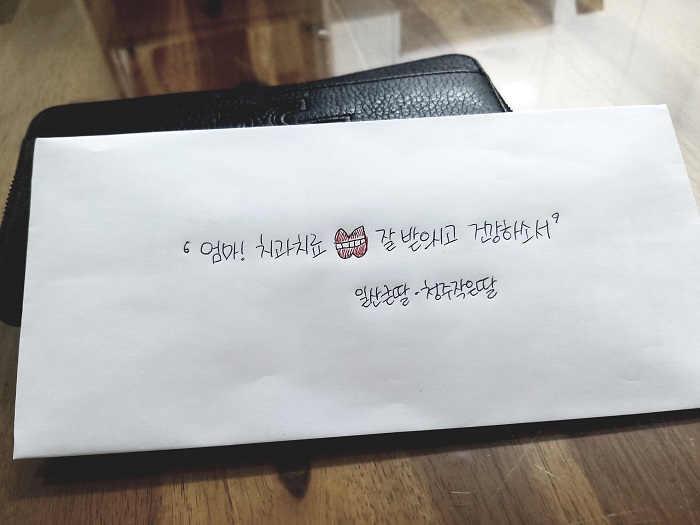 ‘엄마! 치과치료 잘 받으시고 건강하소서’
일산큰딸·청주작은딸